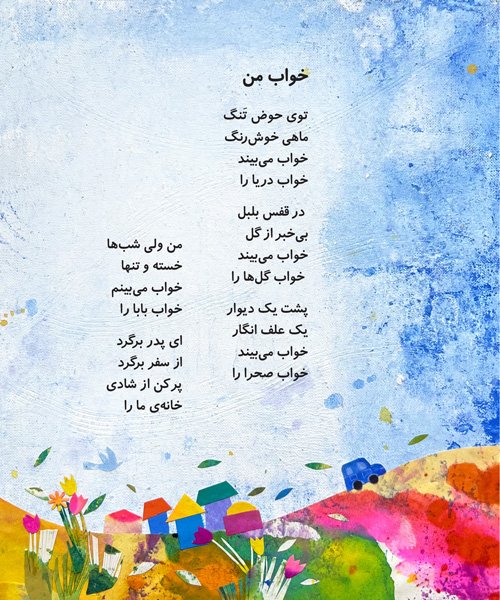 خواب من
توی حوض تَنگ
ماهی خوش‌رنگ
خواب می‌بیند
خواب دریا را
در قفس بلبل
بی‌خبر از گل
خواب می‌بیند
خواب گل‌ها را
پشت یک دیوار
یک علف انگار
خواب می‌بیند
خواب صحرا را
من ولی شب‌ها
خسته و تنها
خواب می‌بینم
خواب بابا را
ای پدر برگرد
از سفر برگرد
پر کن از شادی
خانه‌ی ما را